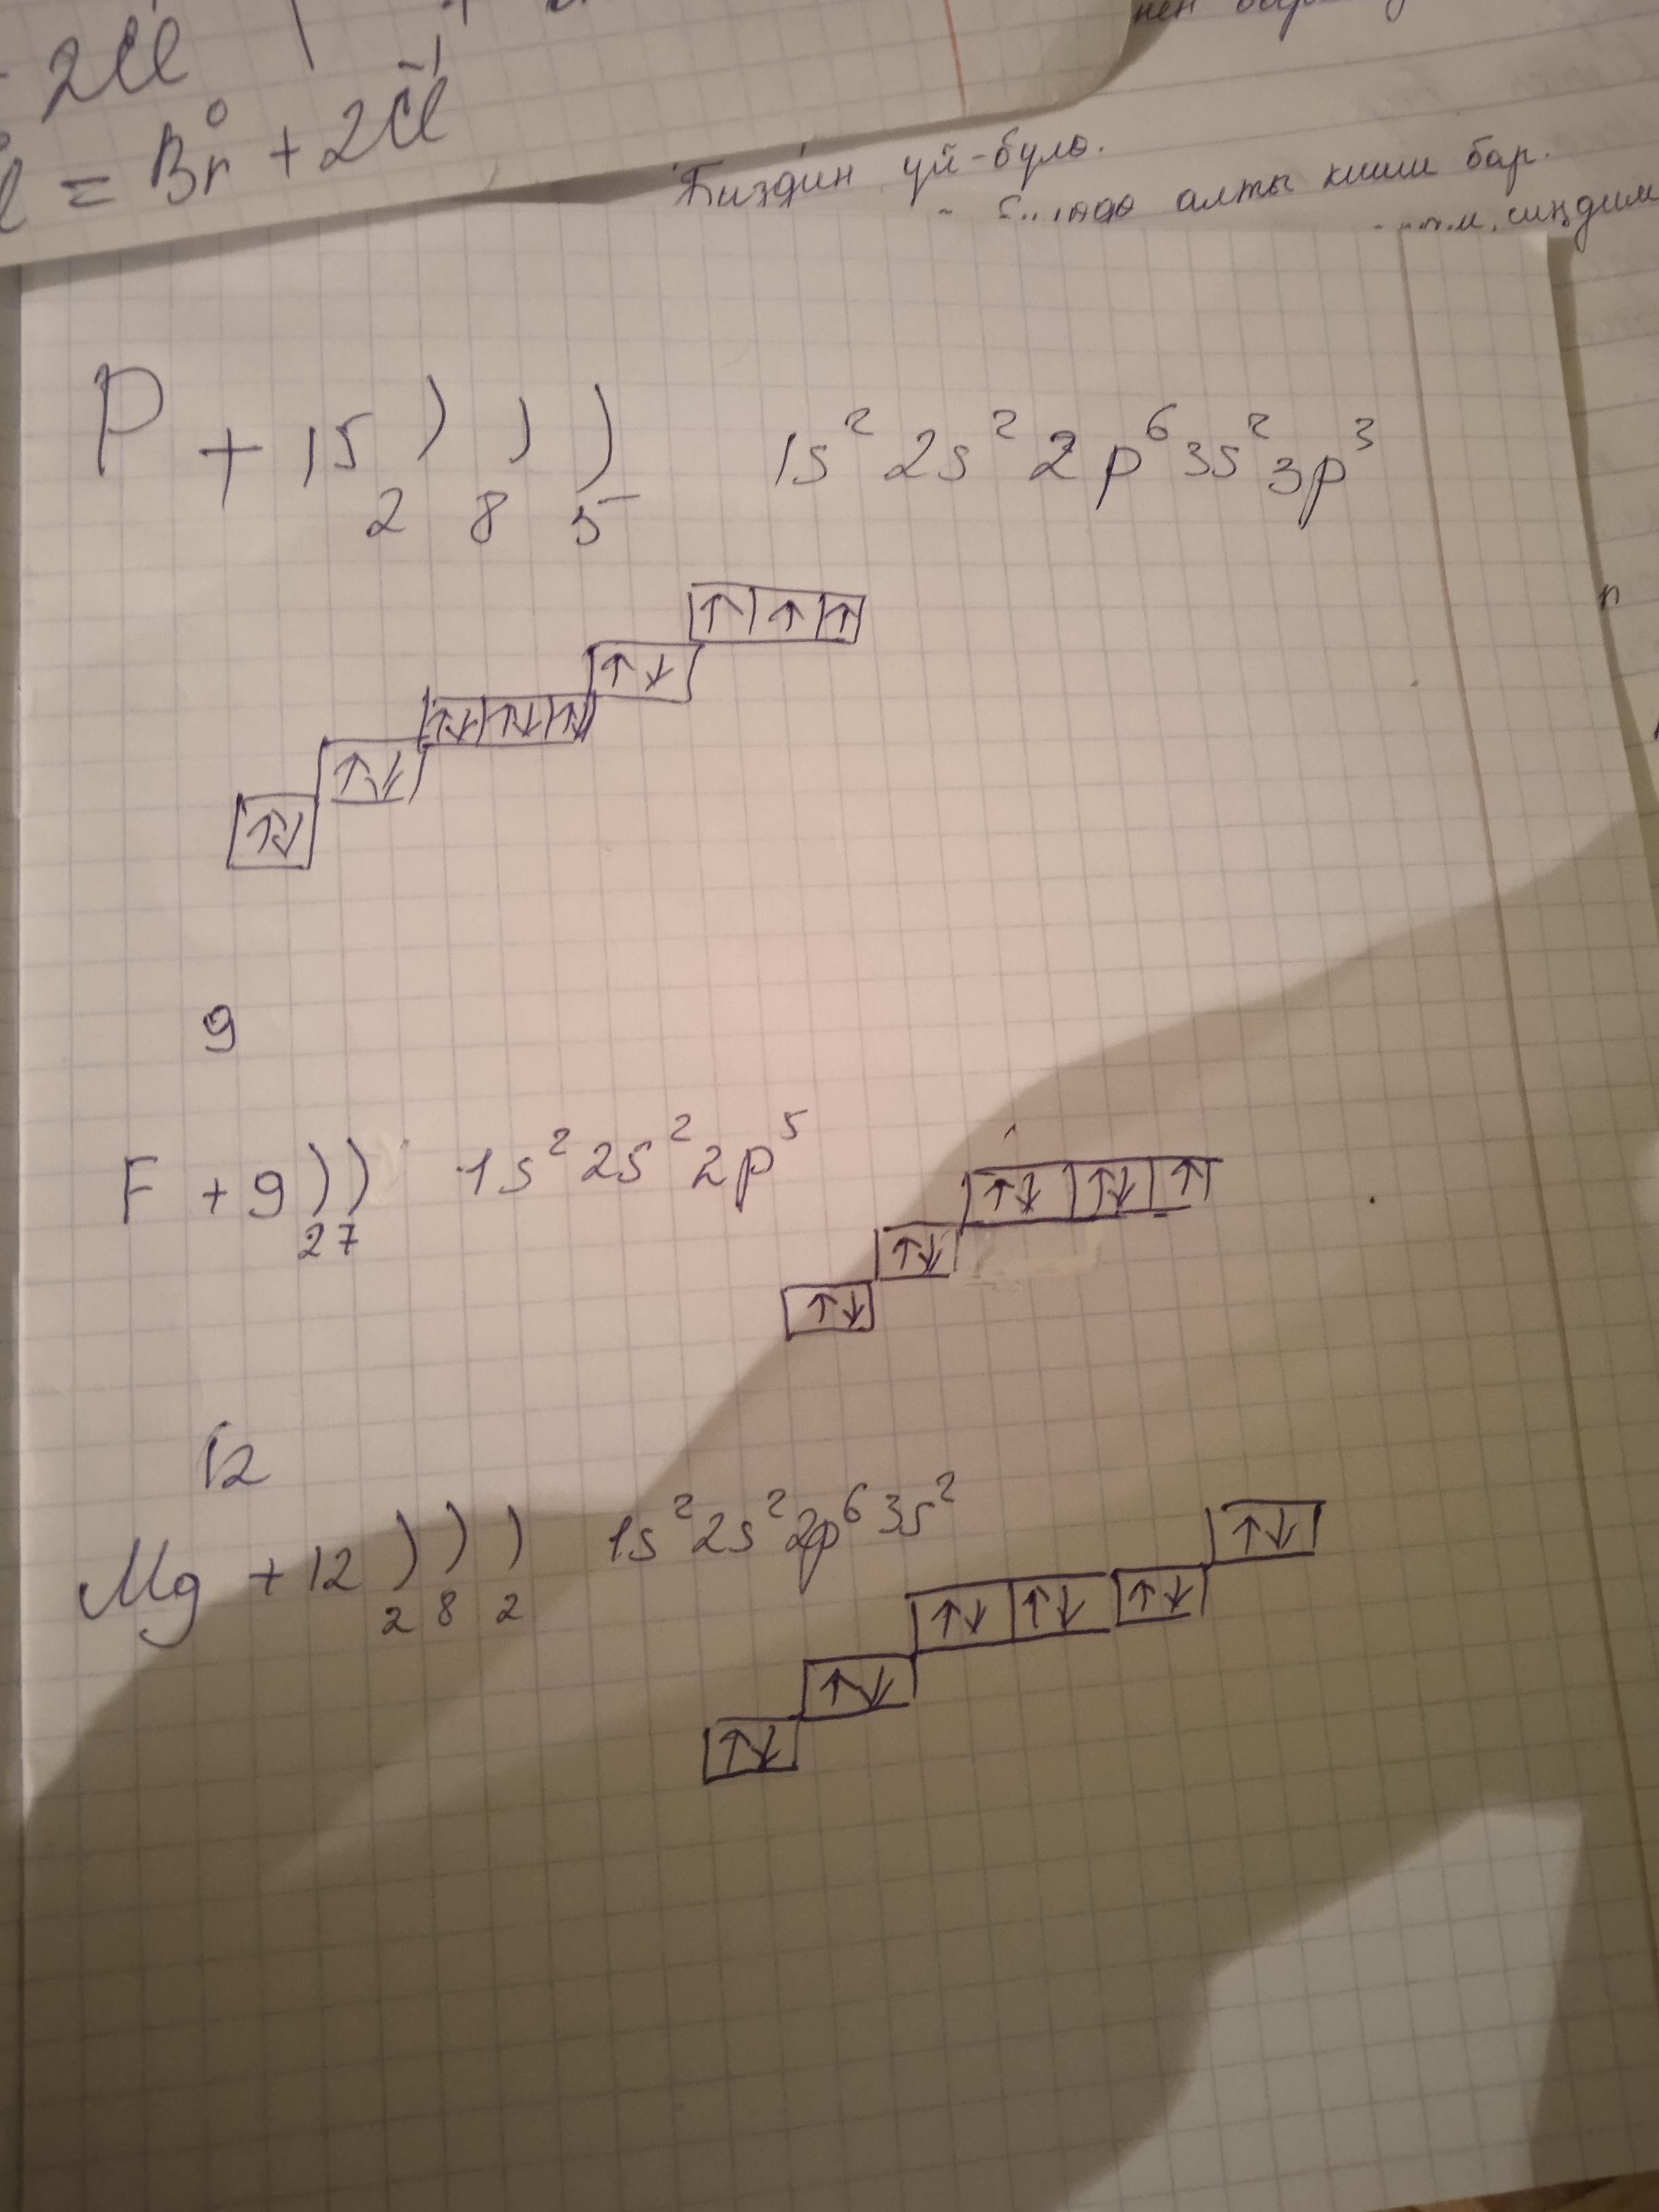 2Cl
= Br⁰ + 2Cl⁻¹
нен
Биздин үй-бүлө.
алты киши бар.
сиңдим
P + 15 ) ) ) 1s² 2s² 2p⁶ 3s² 3p³
2 8 5
↑↓ ↑↓ ↑↓ ↑↓ ↑↓ ↑↓ ↑ ↑ ↑
9
F + 9 ) ) 1s² 2s² 2p⁵
2 7
↑↓ ↑↓ ↑↓ ↑↓ ↑
12
Mg + 12 ) ) ) 1s² 2s² 2p⁶ 3s²
2 8 2
↑↓ ↑↓ ↑↓ ↑↓ ↑↓ ↑↓